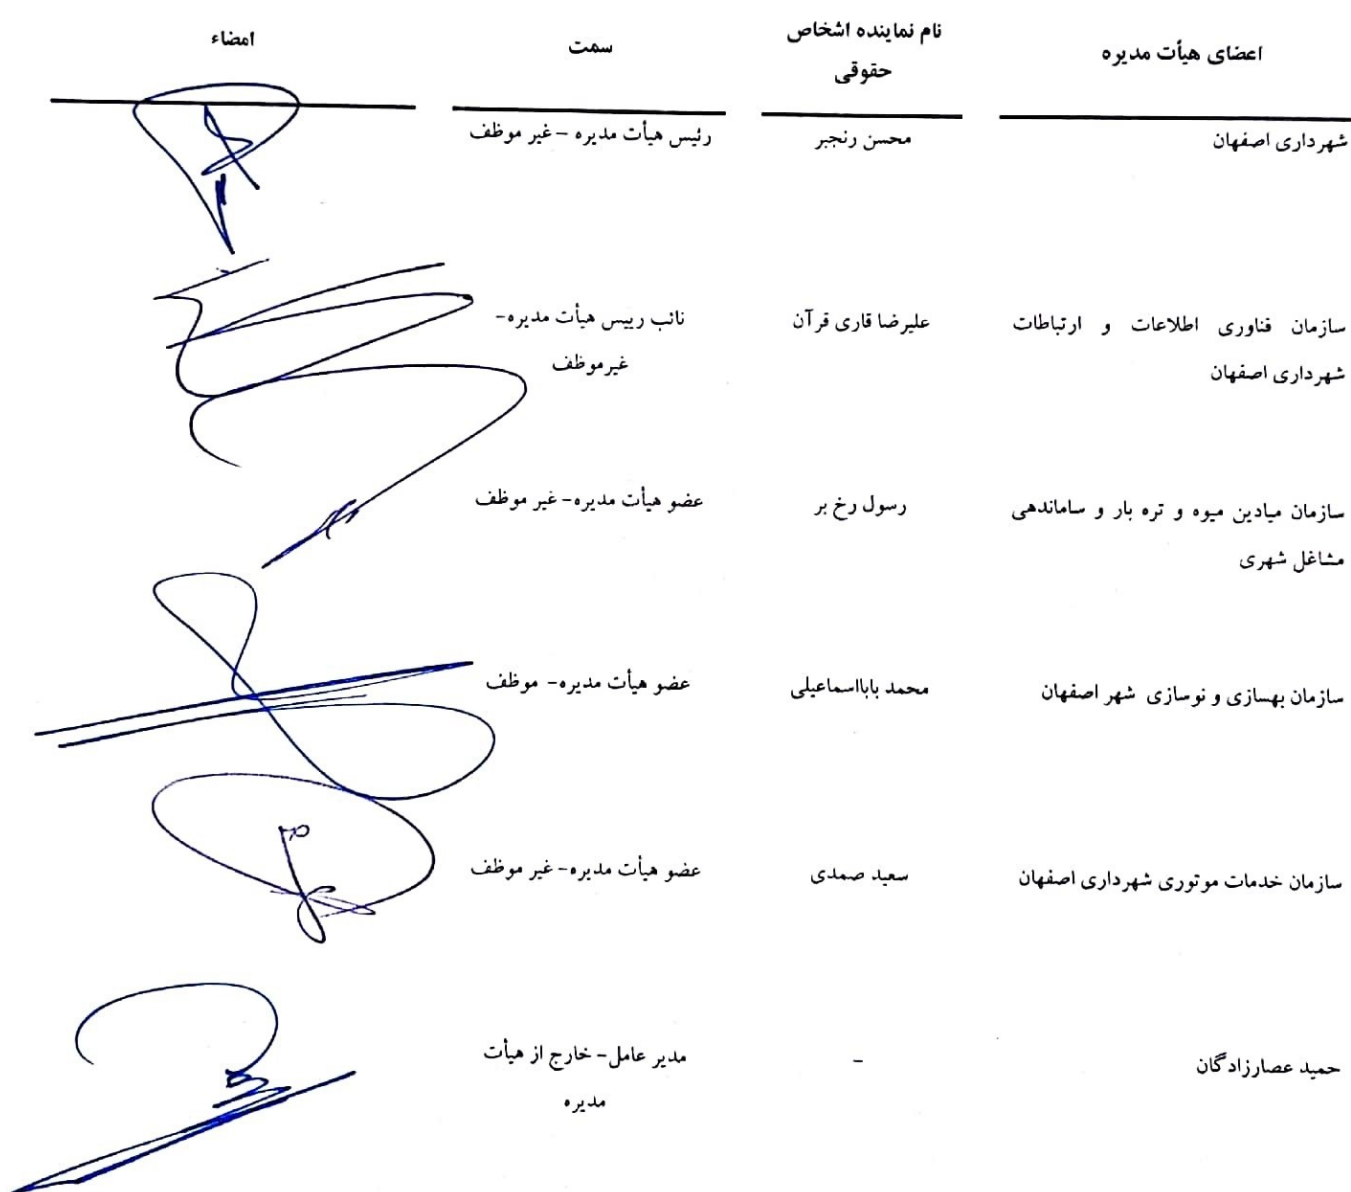 اعضای هیأت مدیره
نام نماینده اشخاص
حقوقی
سمت
امضاء
شهرداری اصفهان
محسن رنجبر
رئیس هیأت مدیره – غیر موظف
سازمان فناوری اطلاعات و ارتباطات
شهرداری اصفهان
علیرضا قاری قرآن
نائب رییس هیأت مدیره-
غیرموظف
سازمان میادین میوه و تره بار و ساماندهی
مشاغل شهری
رسول رخ بر
عضو هیأت مدیره- غیر موظف
سازمان بهسازی و نوسازی شهر اصفهان
محمد بابااسماعیلی
عضو هیأت مدیره- موظف
سازمان خدمات موتوری شهرداری اصفهان
سعید صمدی
عضو هیأت مدیره- غیر موظف
حمید عصارزادگان
-
مدیر عامل- خارج از هیأت
مدیره